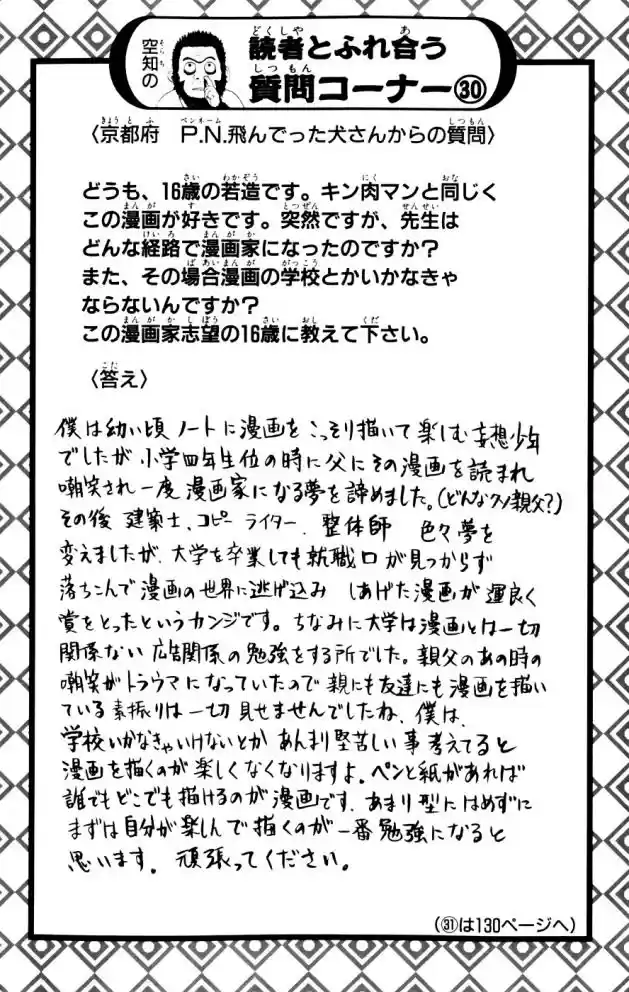 空知の
読者とふれ合う
質問コーナー㉚
〈京都府　P.N.飛んでった犬さんからの質問〉
どうも、16歳の若造です。キン肉マンと同じく
この漫画が好きです。突然ですが、先生は
どんな経路で漫画家になったのですか?
また、その場合漫画の学校とかいかなきゃ
ならないんですか?
この漫画家志望の16歳に教えて下さい。
〈答え〉
僕は幼い頃 ノートに漫画をこっそり描いて楽しむ妄想少年
でしたが 小学四年生位の時に父にその漫画を読まれ
嘲笑され一度漫画家になる夢を諦めました。(どんなクソ親父?)
その後 建築士、コピーライター、整体師 色々夢を
変えましたが、大学を卒業しても就職口が見つからず
落ちこんで漫画の世界に逃げ込み しあげた漫画が運良く
賞をとったというカンジです。ちなみに大学は漫画とは一切
関係ない 広告関係の勉強をする所でした。親父のあの時の
嘲笑がトラウマになっていたので親にも友達にも漫画を描い
ている素振りは一切見せませんでしたね、僕は、
学校いかなきゃいけないとか あんまり堅苦しい事考えてると
漫画を描くのが楽しくなくなりますよ。ペンと紙があれば
誰でもどこでも描けるのが漫画です、あまり型にはめずに
まずは自分が楽しんで描くのが一番勉強になると
思います。頑張ってください。
(㉛は130ページへ)